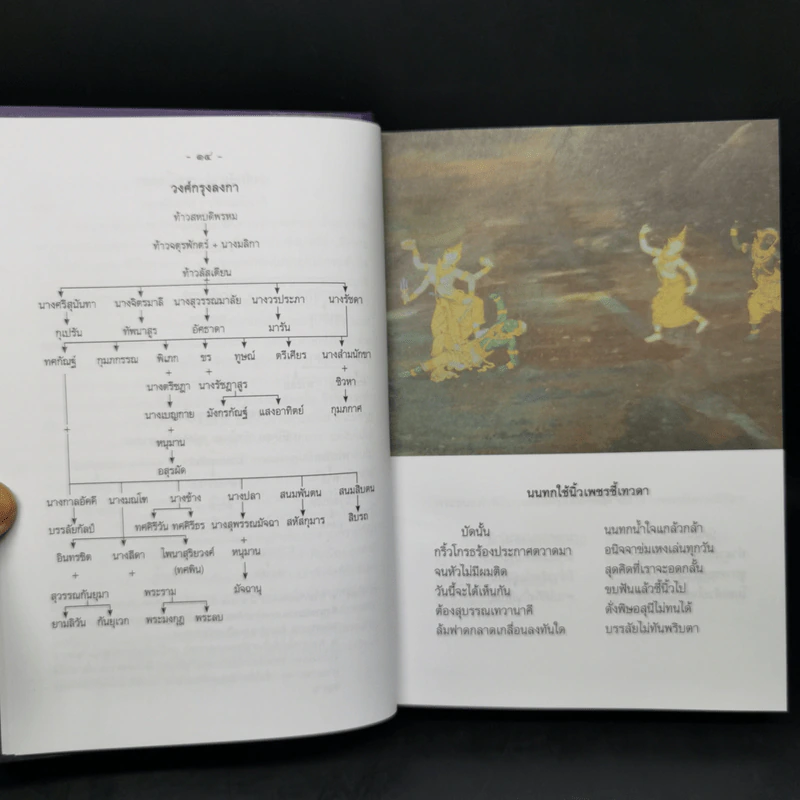 - ๑๔ -
วงศ์กรุงลงกา
ท้าวสหบดีพรหม
ท้าวจตุรพักตร์ + นางมลิกา
ท้าวลัสเตียน
นางศรีสุนันทา นางจิตรมาลี นางสุวรรณมาลัย นางวรประภา นางรัชดา
กุเปรัน ทัพนาสูร อัศธาดา มารัน
ทศกัณฐ์ กุมภกรรณ พิเภก ขร ทูษณ์ ตรีเศียร นางสำมนักขา
+ + +
นางตรีชฎา นางรัชฎาสูร ชิวหา
นางเบญกาย มังกรกัณฐ์ แสงอาทิตย์ กุมภกาศ
+
+
หนุมาน
อสุรผัด
นางกาลอัคคี นางมณโฑ นางช้าง นางปลา สนมพันตน สนมสิบตน
บรรลัยกัลป์ ทศคีรีวัน ทศคีรีธร นางสุพรรณมัจฉา สหัสกุมาร สิบรถ
อินทรชิต นางสีดา ไพนาสุริยวงศ์ + หนุมาน
(ทศพิน)
+ +
สุวรรณกันยุมา พระราม มัจฉานุ
ยามลิวัน กันยุเวก พระมงกุฎ พระลบ
นนทกใช้นิ้วเพชรชี้เทวดา
บัดนั้น นนทกน้ำใจแกล้วกล้า
กริ้วโกรธร้องประกาศตวาดมา อนิจจาข่มเหงเล่นทุกวัน
จนหัวไม่มีผมติด สุดคิดที่เราจะอดกลั้น
วันนี้จะได้เห็นกัน ขบฟันแล้วชี้นิ้วไป
ต้องสุบรรณเทวานาคี ดั่งพิษอสุนีไม่ทนได้
ล้มฟาดกลาดเกลื่อนลงทันใด บรรลัยไม่ทันพริบตา